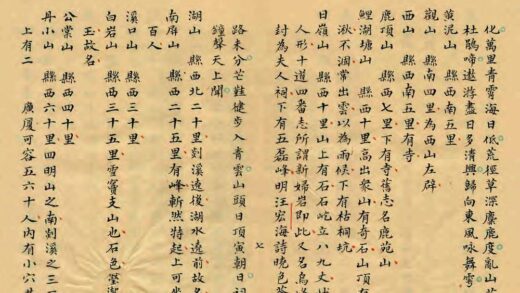 化萬里青霄海日低荒徑草深麋鹿度亂山
杜鵑啼遨游盡日多清興歸向東風咏舞雩
黃泥山 縣西南五里
觀山 縣南四里為西山左辟
西山 縣西南五里有寺
鹿頂山 縣西七里下有寺舊志名鹿苑山
鯉湖塘山 縣西十里高出衆山有奇石山頂有
湫不涸常出雲以為雨候下有枯桐坑
日嶺山 縣西十里山上有石石屹立八九丈
人形十道四番志所謂新婦岩即此又名烏
封為夫人祠下有五磊峰明汪宏海詩曉色
七
路未分芒鞋健步入青雲山頭日頂寅朝日
鐘聲天上聞
湖山 縣西北二十里剡溪遶後湖水遶前故名
南屏山 縣西二十五里有峰嶄然特起上可坐
百人
溪口山 縣西三十里
白岩山 縣西三十五里雪竇支山也石色瑩
玉故名
公棠山 縣西四十里
丹小山 縣西六十里四明山之南剡溪之三
上有二 廣厦可容五六十人內有小穴